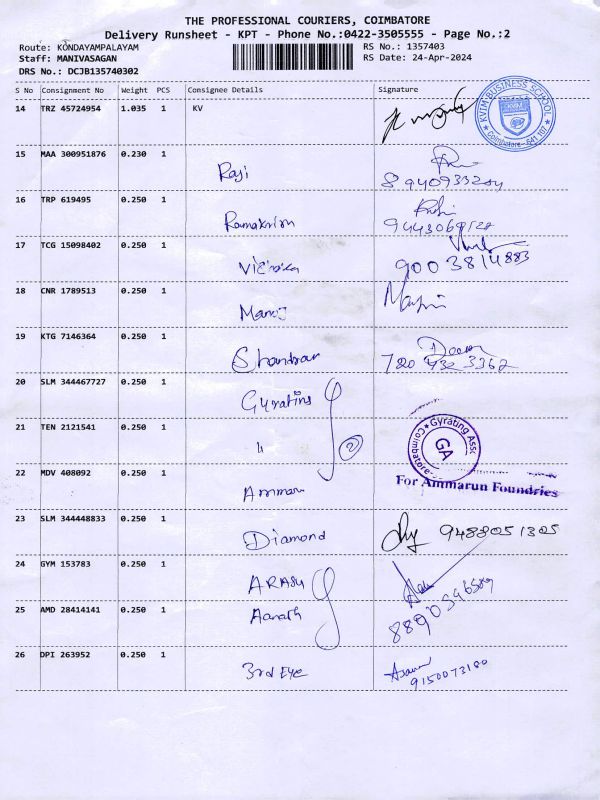 THE PROFESSIONAL COURIERS, COIMBATORE
Delivery Runsheet - KPT - Phone No.:0422-3505555 - Page No.:2
Route: KONDAYAMPALAYAM RS No.: 1357403
Staff: MANIVASAGAN RS Date: 24-Apr-2024
DRS No.: DCJB135740302
S No Consignment No Weight PCS Consignee Details Signature
14 TRZ 45724954 1.035 1 KV
KVIM BUSINESS SCHOOL
KVIM
Coimbatore - 641 107
15 MAA 300951876 0.230 1
Raji
16 TRP 619495 0.250 1
17 TCG 15098402 0.250 1
9003814883
18 CNR 1789513 0.250 1
Manoj
19 KTG 7146364 0.250 1
720 432 3362
20 SLM 344467727 0.250 1
Gyrating
21 TEN 2121541 0.250 1
" 2
Gyrating Asso
GA
Coimbatore
22 MDV 408092 0.250 1
For Ammarun Foundries
23 SLM 344448833 0.250 1
Diamond 9488051305
24 GYM 153783 0.250 1
ARASU
25 AMD 28414141 0.250 1
26 DPI 263952 0.250 1
3rd Eye
9150073180